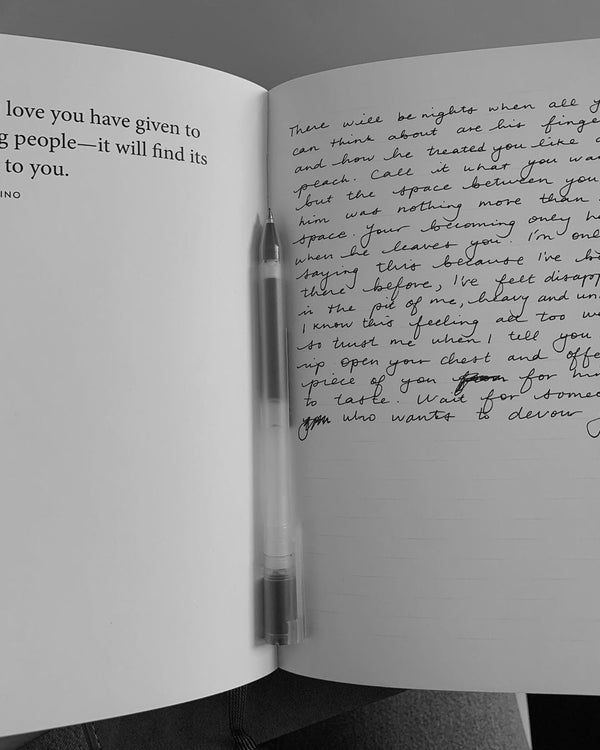 love you have given to
g people—it will find its
to you.
INO
There will be nights when all y
can think about are his finge
and how he treated you like a
peach. Call it what you wa
but the space between you
him was nothing more than
space. Your becoming only ha
when he leaves you. I'm onl
saying this because I've b
there before, I've felt disapp
in the pit of me, heavy and un
I know this feeling all too we
so trust me when I tell you
rip open your chest and offe
piece of you for him
to taste. Wait for someo
who wants to devour y